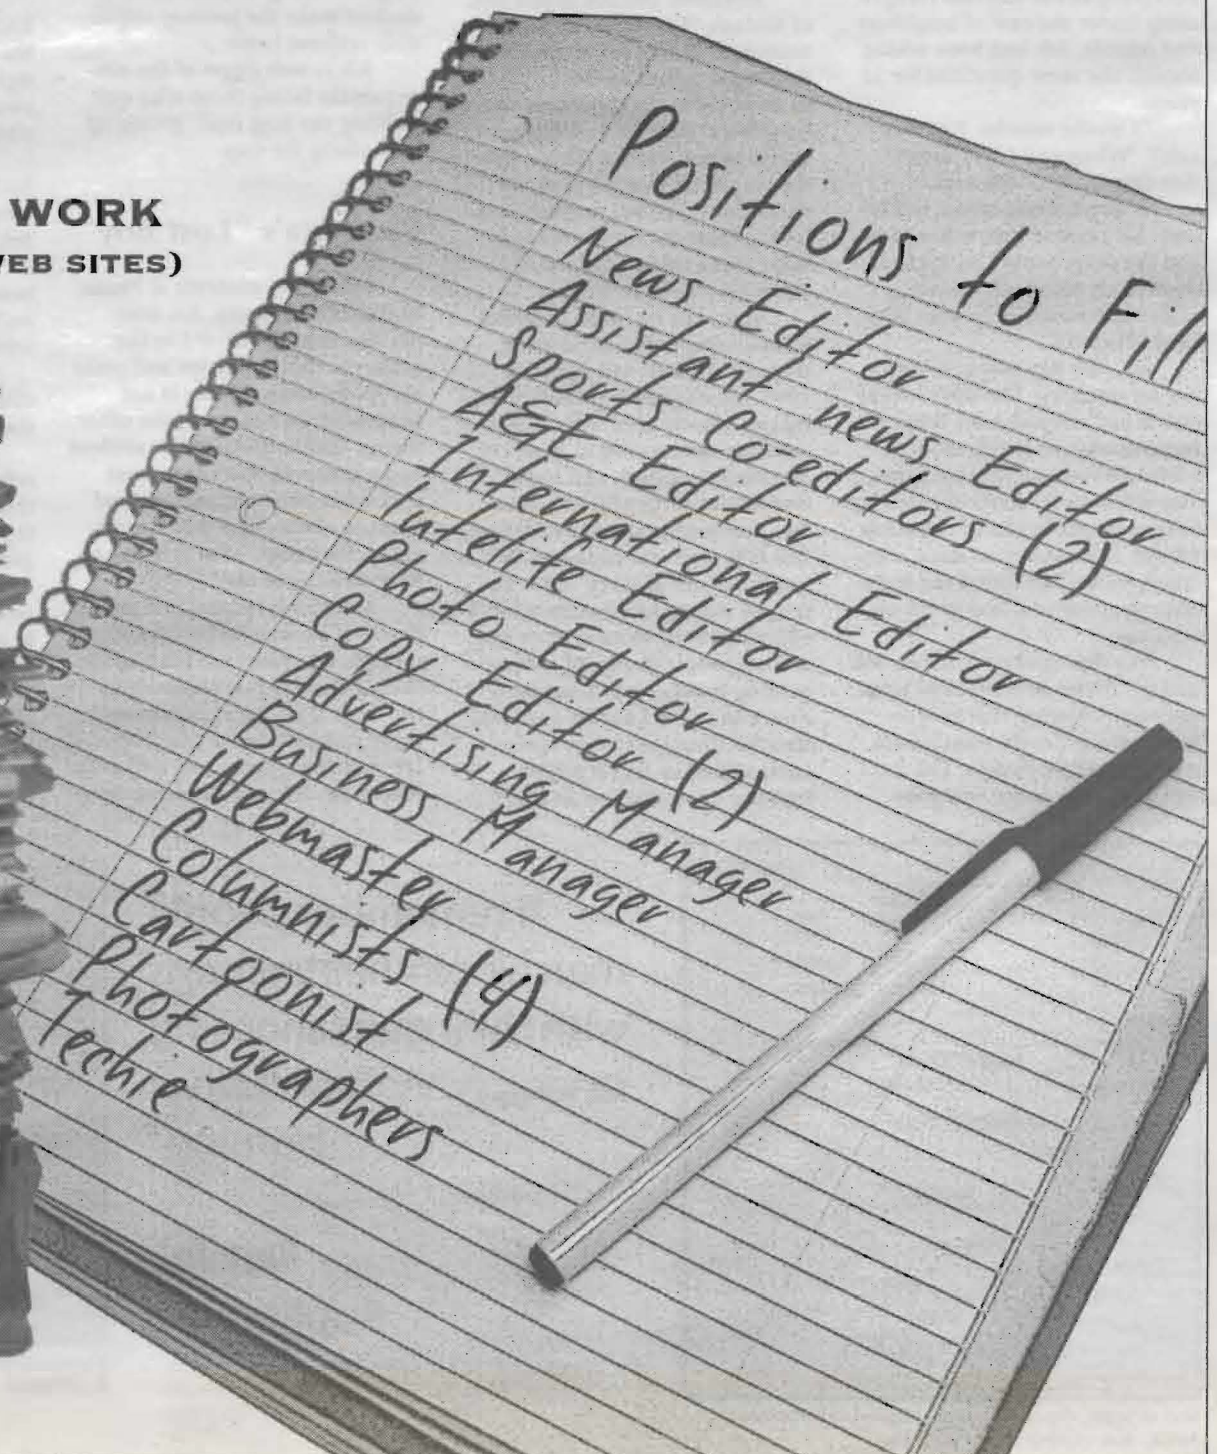 WORK
WEB SITES)
Positions to Fill
News Editor
Assistant news Editor
Sports Co-editors (2)
A&E Editor
International Editor
Lutelife Editor
Photo Editor
Copy Editor (2)
Advertising Manager
Business Manager
Webmaster
Columnists (4)
Cartoonist
Photographers
Techie